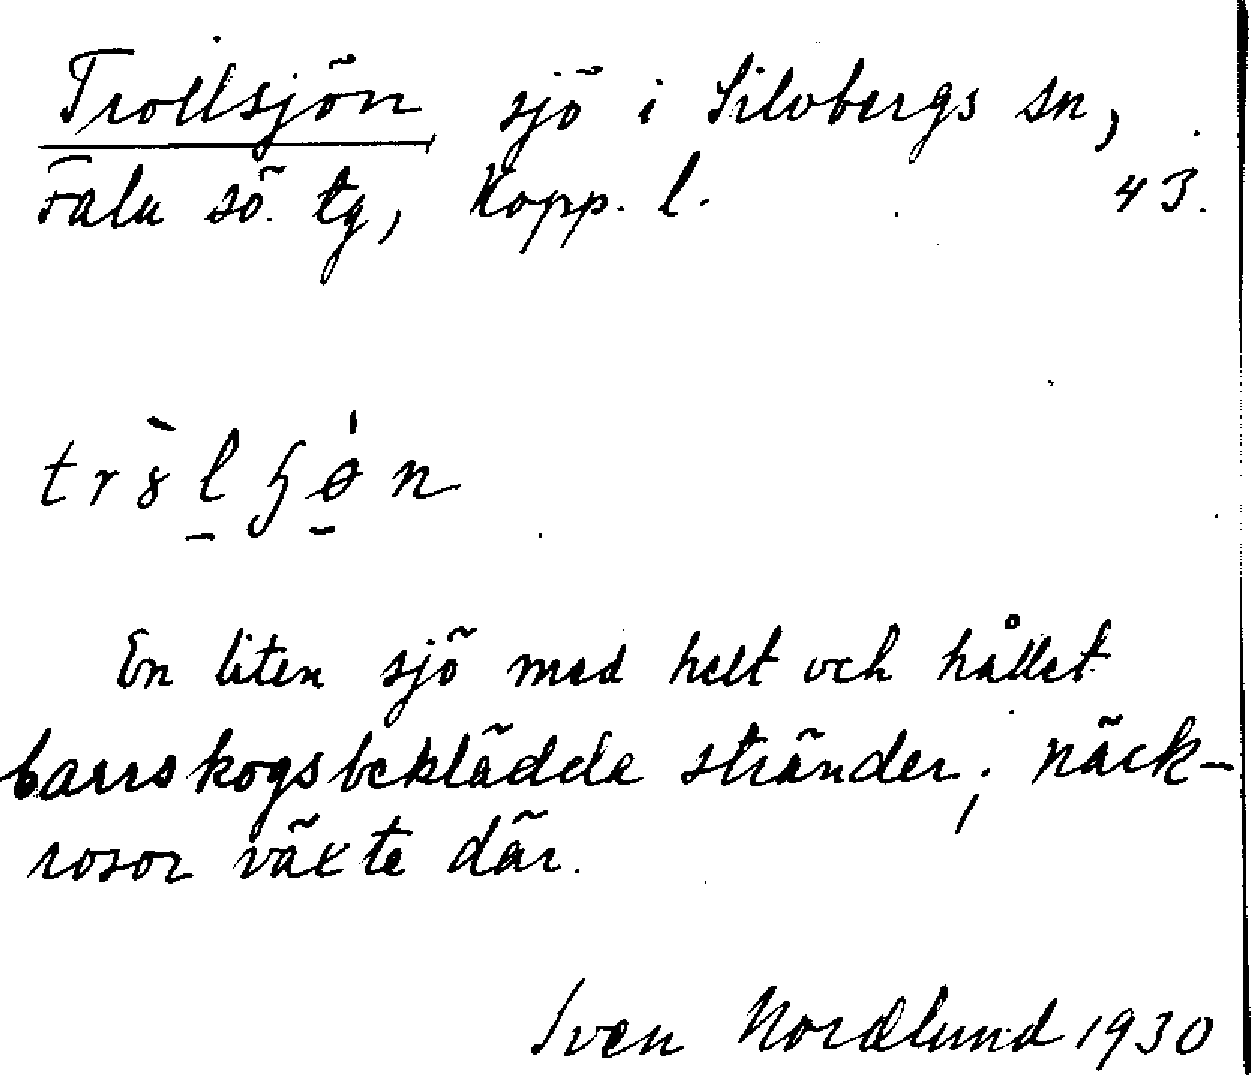 Trollsjön sjö i Silvbergs sn,
Falu sö. tg, Kopp. l. 43.
trò̀lɧø̀n
En liten sjö med helt och hållet
barrskogsbeklädde stränder; näck-
rosor växte där.
Sven Nordlund 1930